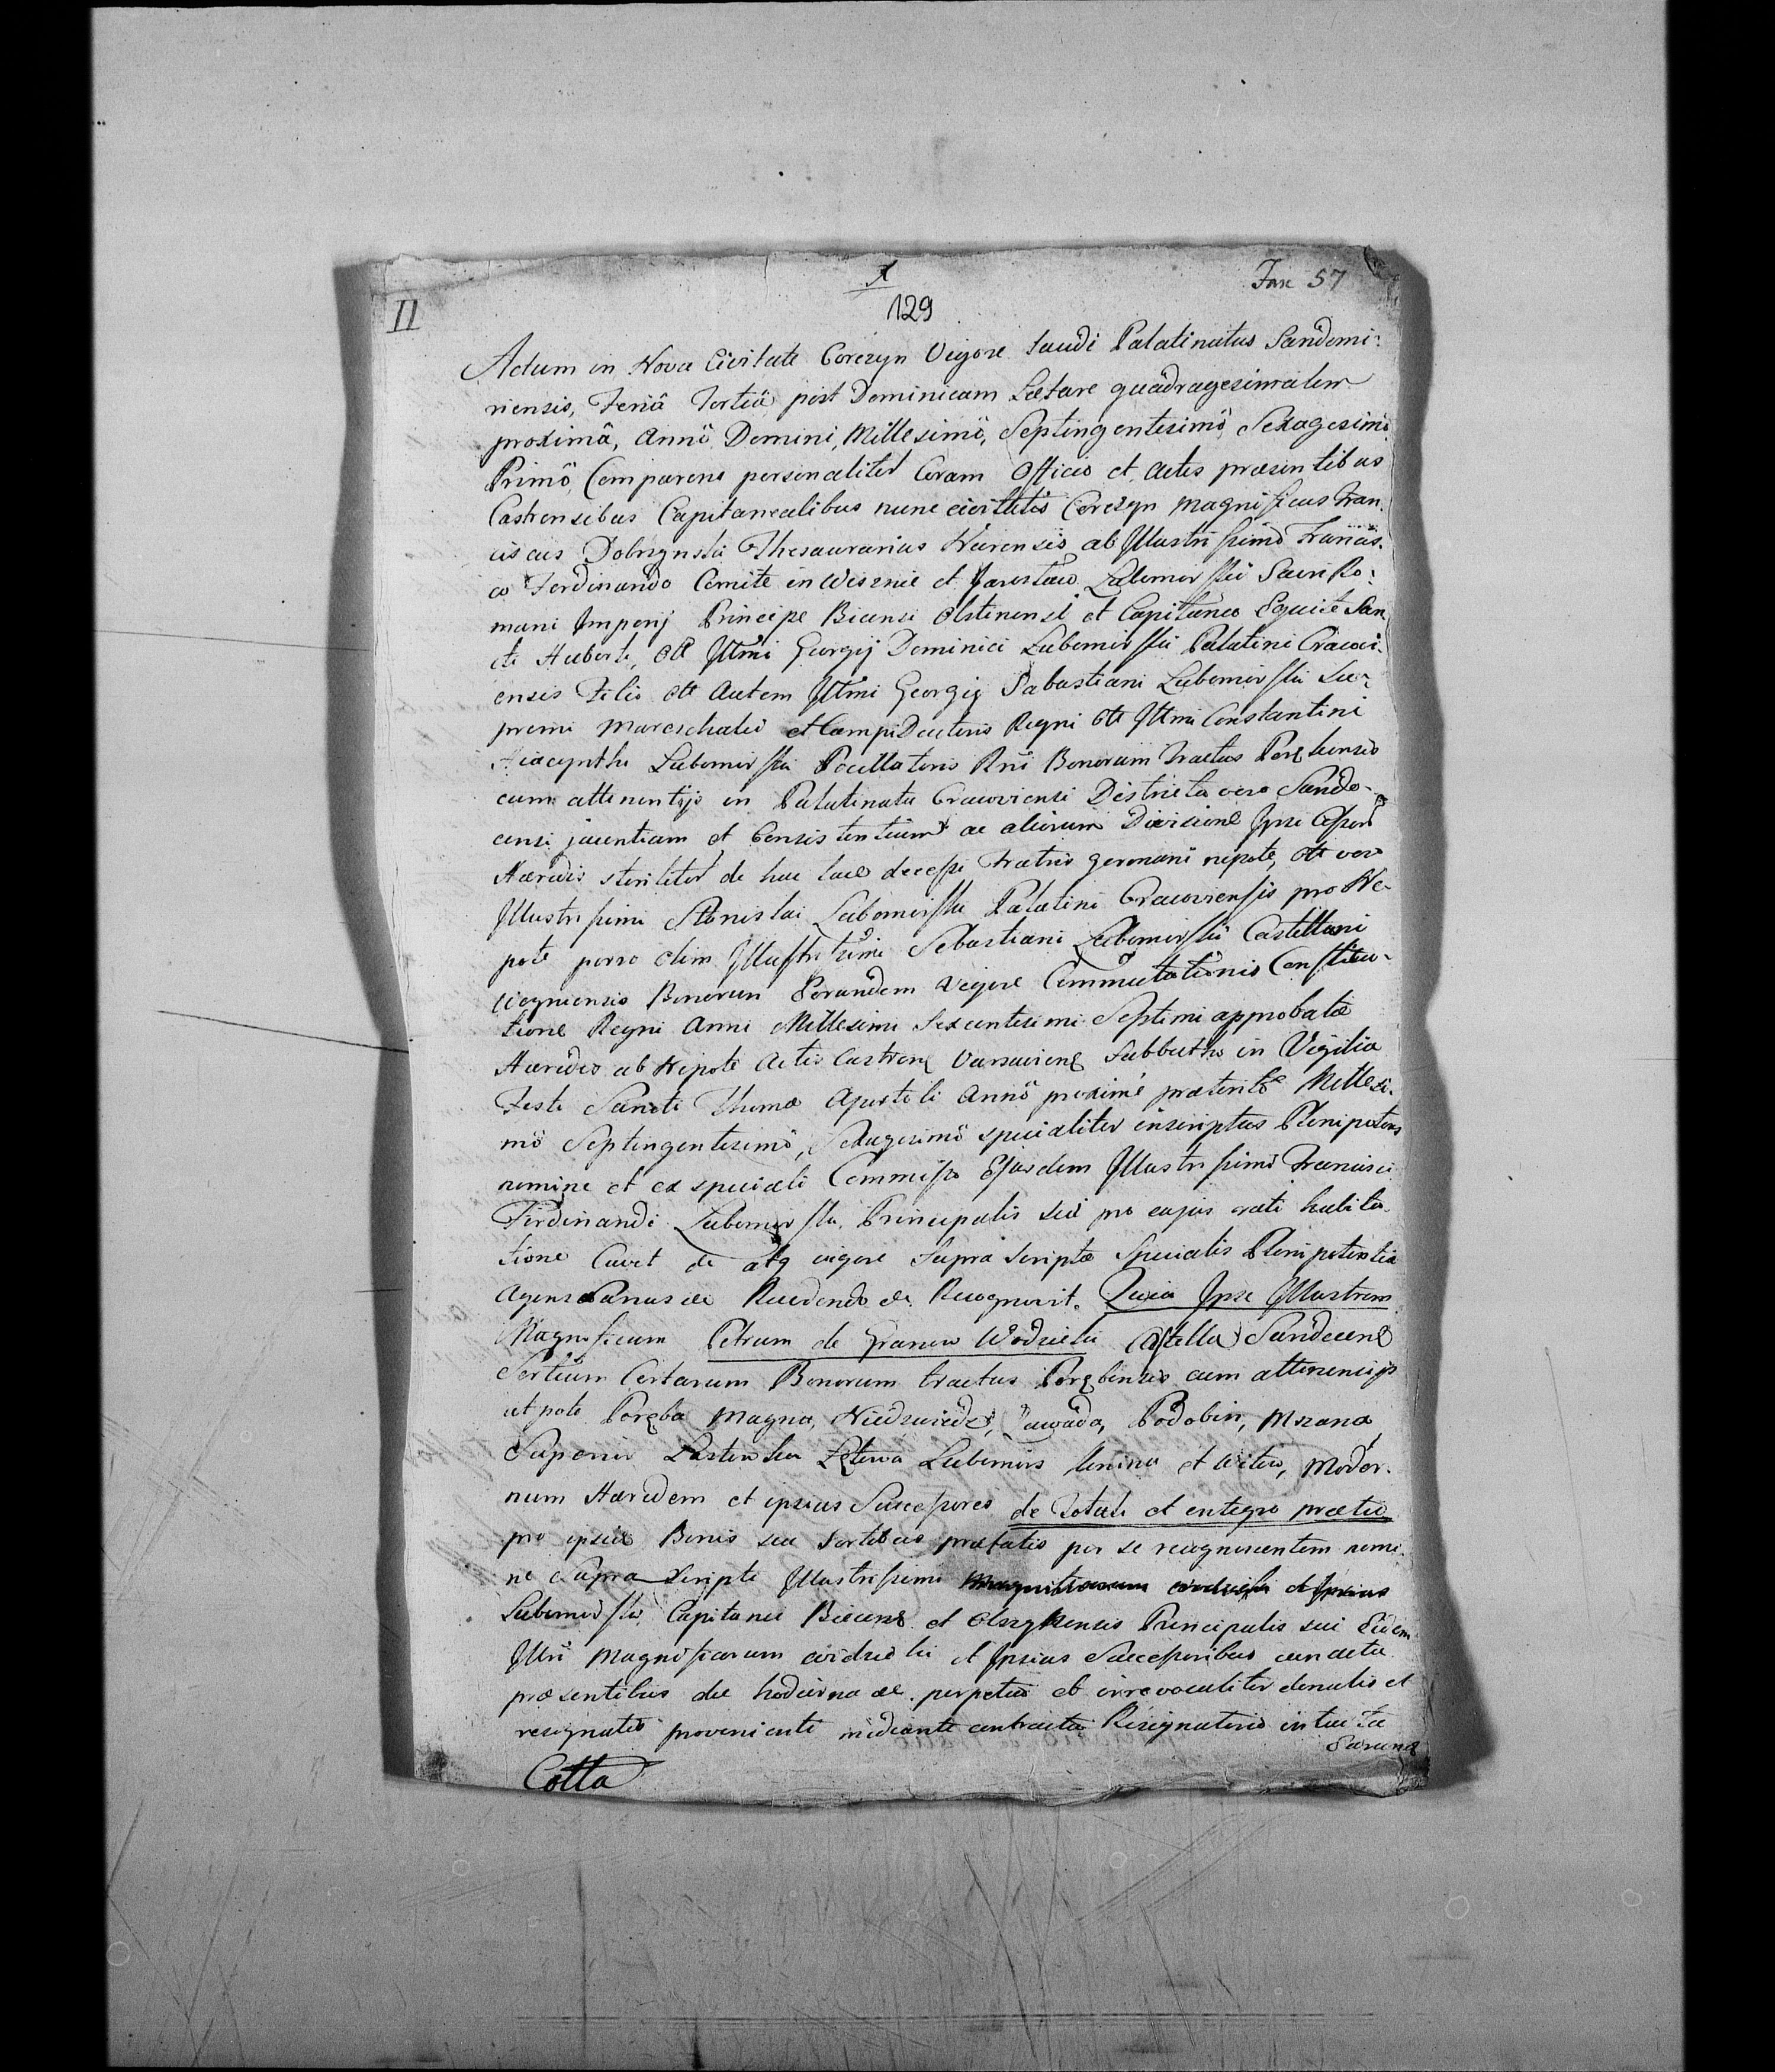 1
Fasc 57
II
129
Actum in Nova Civitate Corczyn Vigore Laudi Palatinatus Sandomi-
riensis, Feriâ Tertiâ post Dominicam Laetare quadragesimalem
proximâ, Annô Domini, Millesimô, Septingentesimô, Sexagesimô
Primô, Comparens personaliter Coram Officio et Actis praesentibus
Castrensibus Capitanealibus nunc civitatis Corczyn Magnificus Fran-
ciscus Dobrzynski Thesaurarius Nurensis ab Illustrissimô Francis-
co Ferdinando Comite in Wisznic et Jaroslaw Lubomirski Sacri Ro-
mani Imperij Principe Biecensi Olstinensi et Capitaneo Equite San-
cti Huberti, olt Illmi Georgij Dominici Lubomirski Palatini Cracovi-
ensis Filio olt Autem Illmi Georgij Sabastiani Lubomirski Su-
premi Mareschalci et Campi Ductoris Regni olt Illmi Constantini
Hiacynthi Lubomirski Pocillatoris Rni Bonorum Tractus Porębensis
cum attinentijs in Palatinatu Cracoviensi Districtu vero Sande-
censi jacentium et Consistentium ac aliorum Divisione Ipsi Cessor
Haeredis steriliter de hac luce decessi Fratris germani nepote, olt vero
Illustrissimi Stanislai Lubomirski Palatini Cracoviensis pro Ne-
pote porro olim Illustrissimi Sebastiani Lubomirski Castellani
Woyniensis Bonorum Eorundem vigore Commutationis Constitu-
tione Regni Anni Millesimi Sexcentesimi Septimi approbatae
Haeredis ab Nepote Actis Castren Varsavien Sabbatho in Vigilia
Festi Sancti Thomae Apostoli Annô proxime praeteritô Millesi-
mô Septingentesimô, Sexagesimô specialiter inscriptus Plenipotens
nomine et ex speciali Commisso Ejusdem Illustrissimi Francisci
Ferdinandi Lubomirski, Principalis sui pro cujus rati habita-
tione Cavet de atq vigore supra scriptae Specialis Plenipotentiae
Agens Sanus &c Recedendo &c Recognovit. Quia Ipse Illustrem
Magnificum Petrum de Granow Wodzicki Castella Sandecens
Sortium Certarum Bonorum tractus Porębensis cum attinencijs
utpote Poręba Magna, Niedzwiedz, Zawada, Podobin, Mszana
Superior Łostowka Łętowa Lubomirz Konina et Witow, Moder-
num Haeredem et ipsius Successores de Totali et integro praetio
pro ipsis Bonis seu Sortibus praefatis per se recognoscentem nomi-
ne Supra Scripti Illustrissimi
Lubomirski, Capitanei Biecens et Olsztynensis Principalis sui Eidem
Illri Magnificorum Wodzicki et Ipsius Successoribus cum actu
praesentibus die hodierna ac perpetuo et irrevocabiliter donatis et
resignatis proveniente mediante contractu Resignationis intu Ta
Sarum
Cotta